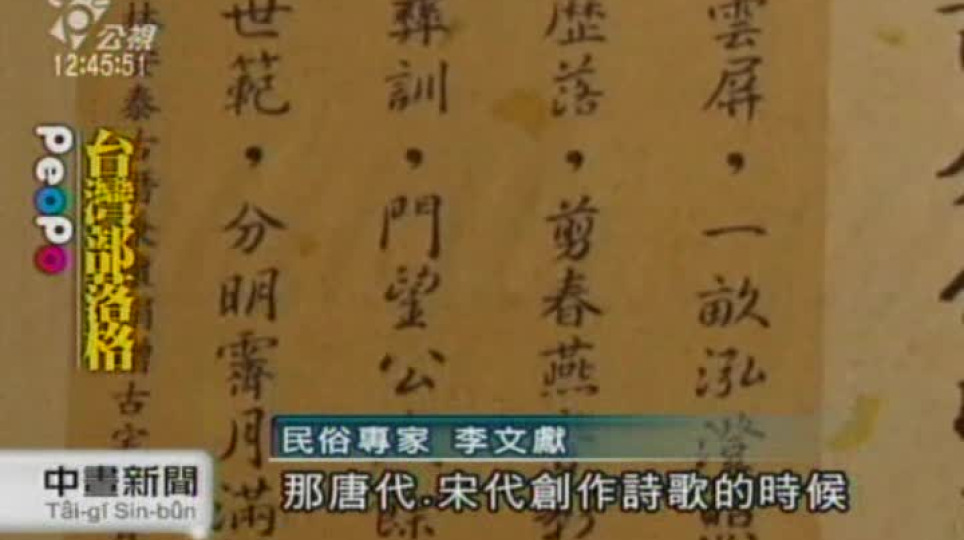 公視
12:45:51
peopo
台灣部落格
雲屏，一畝泓澄
歷落，剪春燕
彝訓，門望公
世範，分明霽月滿
泰古
古
民俗專家 李文獻
那唐代.宋代創作詩歌的時候
中晝新聞
Tâi-gí Sin-bûn